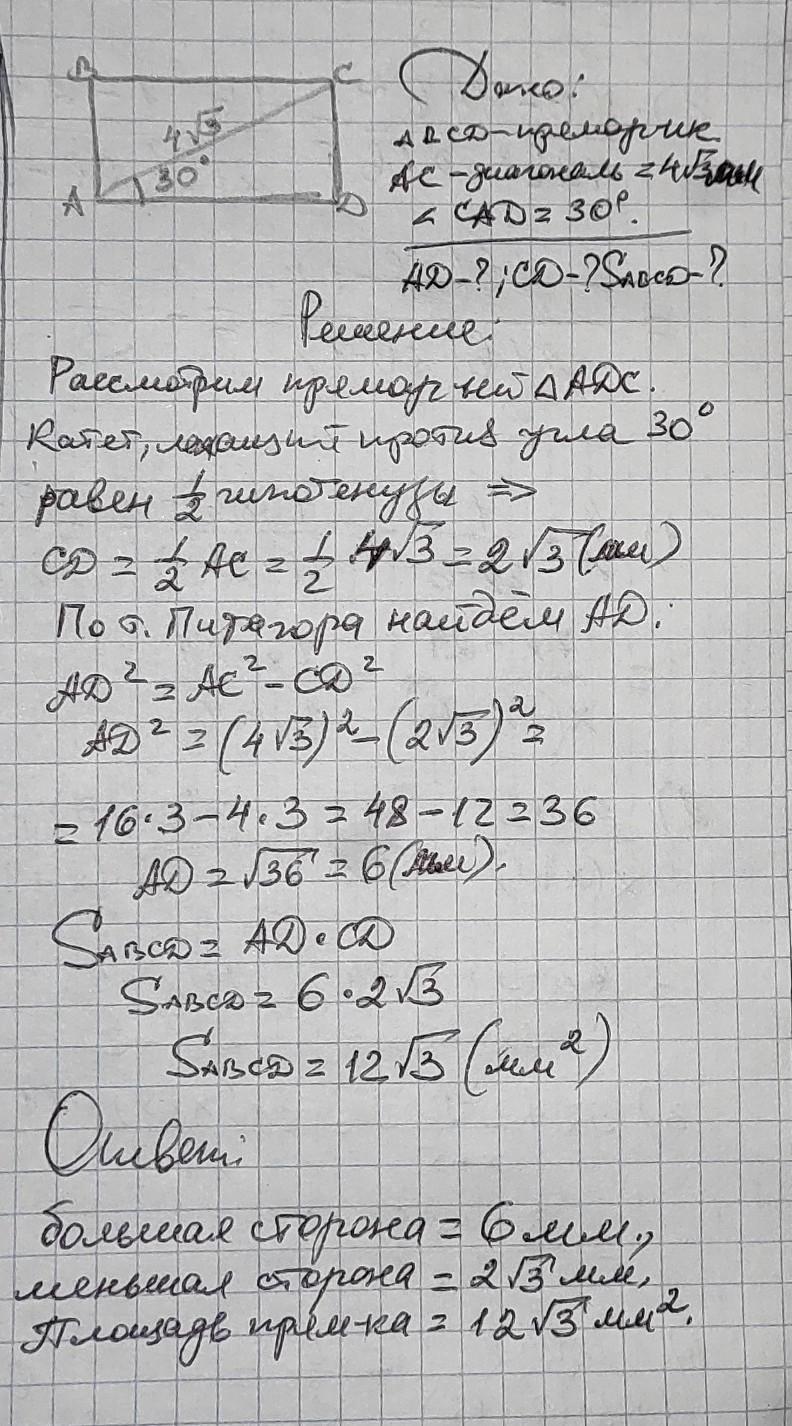 B C
4√3
30°
A D
Дано:
ABCD - прямоугчик
AC - диагональ = 4√3 мм
< CAD = 30°.
AD - ?; CD - ? SABCD - ?
Решение:
Рассмотрим прямоуг-ный △ADC.
Катет, лежащий против угла 30°
равен 1/2 гипотенузы ⇒
CD = 1/2 AC = 1/2 4√3 = 2√3 (мм)
По т. Питагора найдём AD:
AD² = AC² - CD²
AD² = (4√3)² - (2√3)² =
= 16·3 - 4·3 = 48 - 12 = 36
AD = √36 = 6 (мм).
SABCD = AD · CD
SABCD = 6 · 2√3
SABCD = 12√3 (мм²)
Ответ:
большая сторона = 6 мм.,
меньшая сторона = 2√3 мм,
Площадь прям-ка = 12√3 мм².